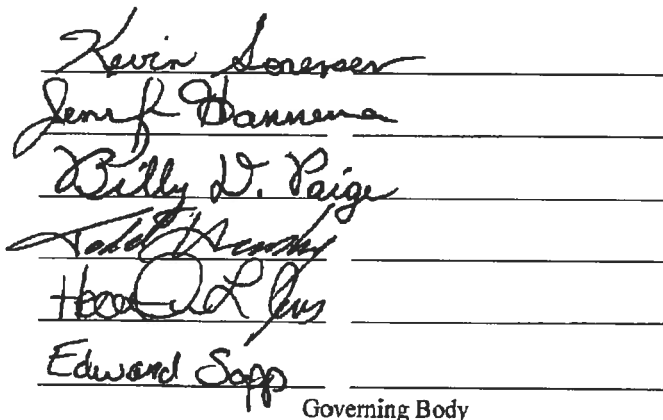 Kevin Sorensen
Hannema
Billy D. Paige
Todd
L
Edward Sapp
Governing Body